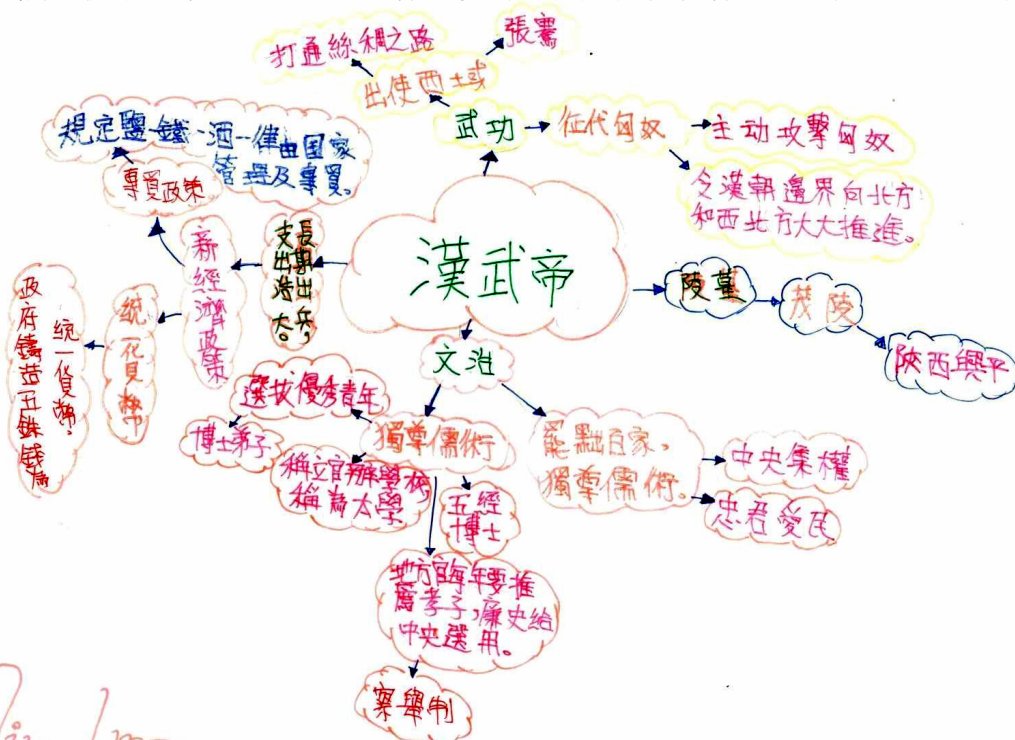 漢武帝
武功
出使西域
打通絲稠之路
張騫
征代匈奴
主动攻擊匈奴
令漢朝邊界向北方
和西北方大大推進。
陵墓
茂陵
陝西興平
文治
罷黜百家,
獨尊儒術。
中央集權
忠君愛民
獨尊儒術
選拔優秀青年
博士弟子
稱立官辦學校,
稱為太學
五經
博士
地方官每年要推
薦孝子,廉史給
中央選用。
察舉制
長期出兵,
支出浩大。
新經濟政策
專買政策
規定鹽、鐵、酒一律由国家
管理及專買。
統一貨幣
統一貨幣。
政府鑄造五銖錢為